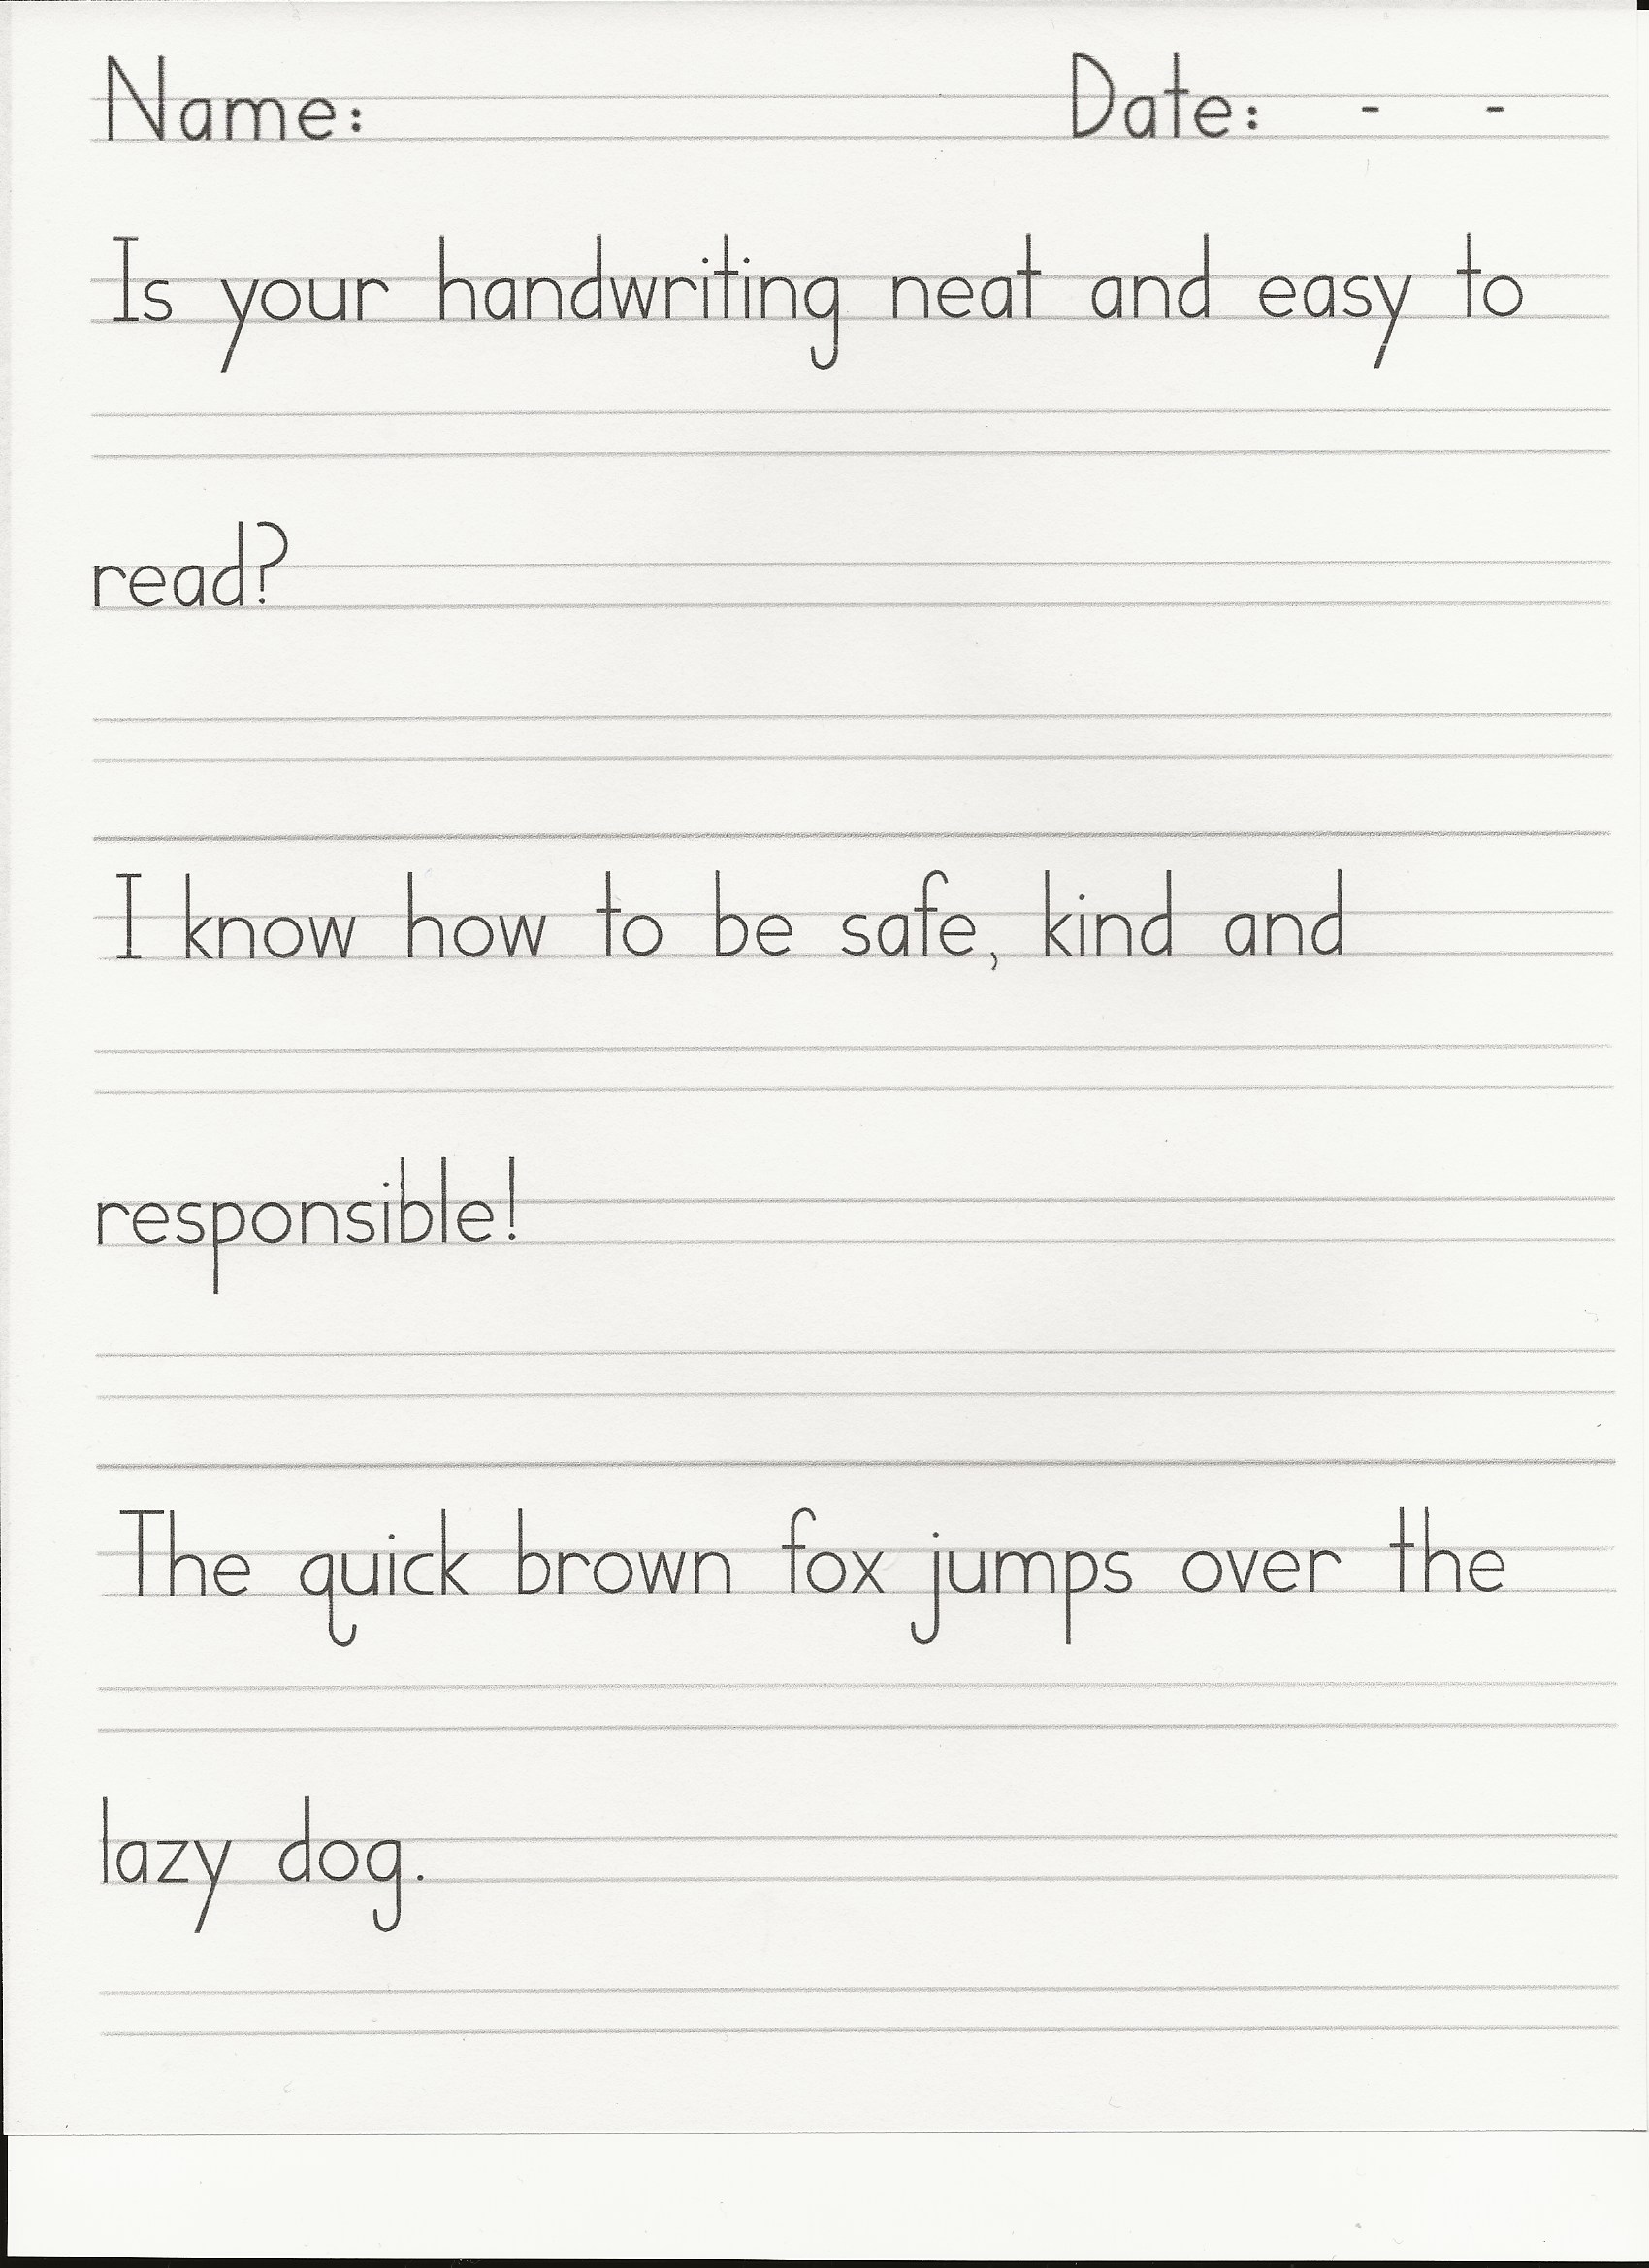 Name: Date: - -
Is your handwriting neat and easy to
read?
I know how to be safe, kind and
responsible!
The quick brown fox jumps over the
lazy dog.